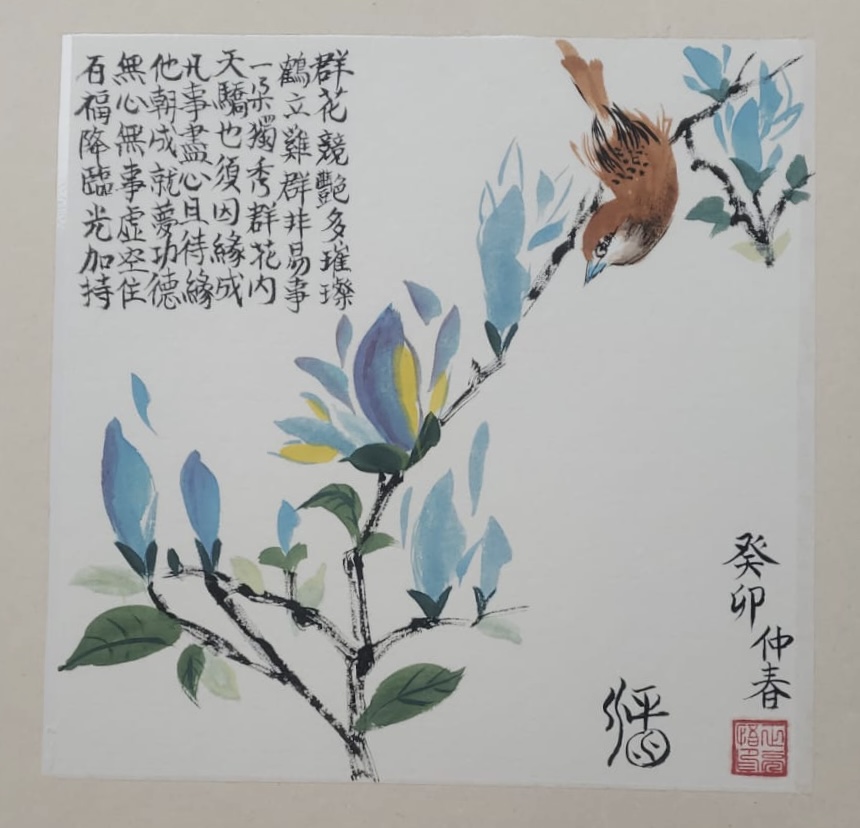 群花競艷多璀璨
鶴立雞群非易事
一朵獨秀群花内
天驕也須因緣成
凡事盡心且待緣
他朝成就夢功德
無心無事虛空住
百福降臨光加持
癸卯
仲春